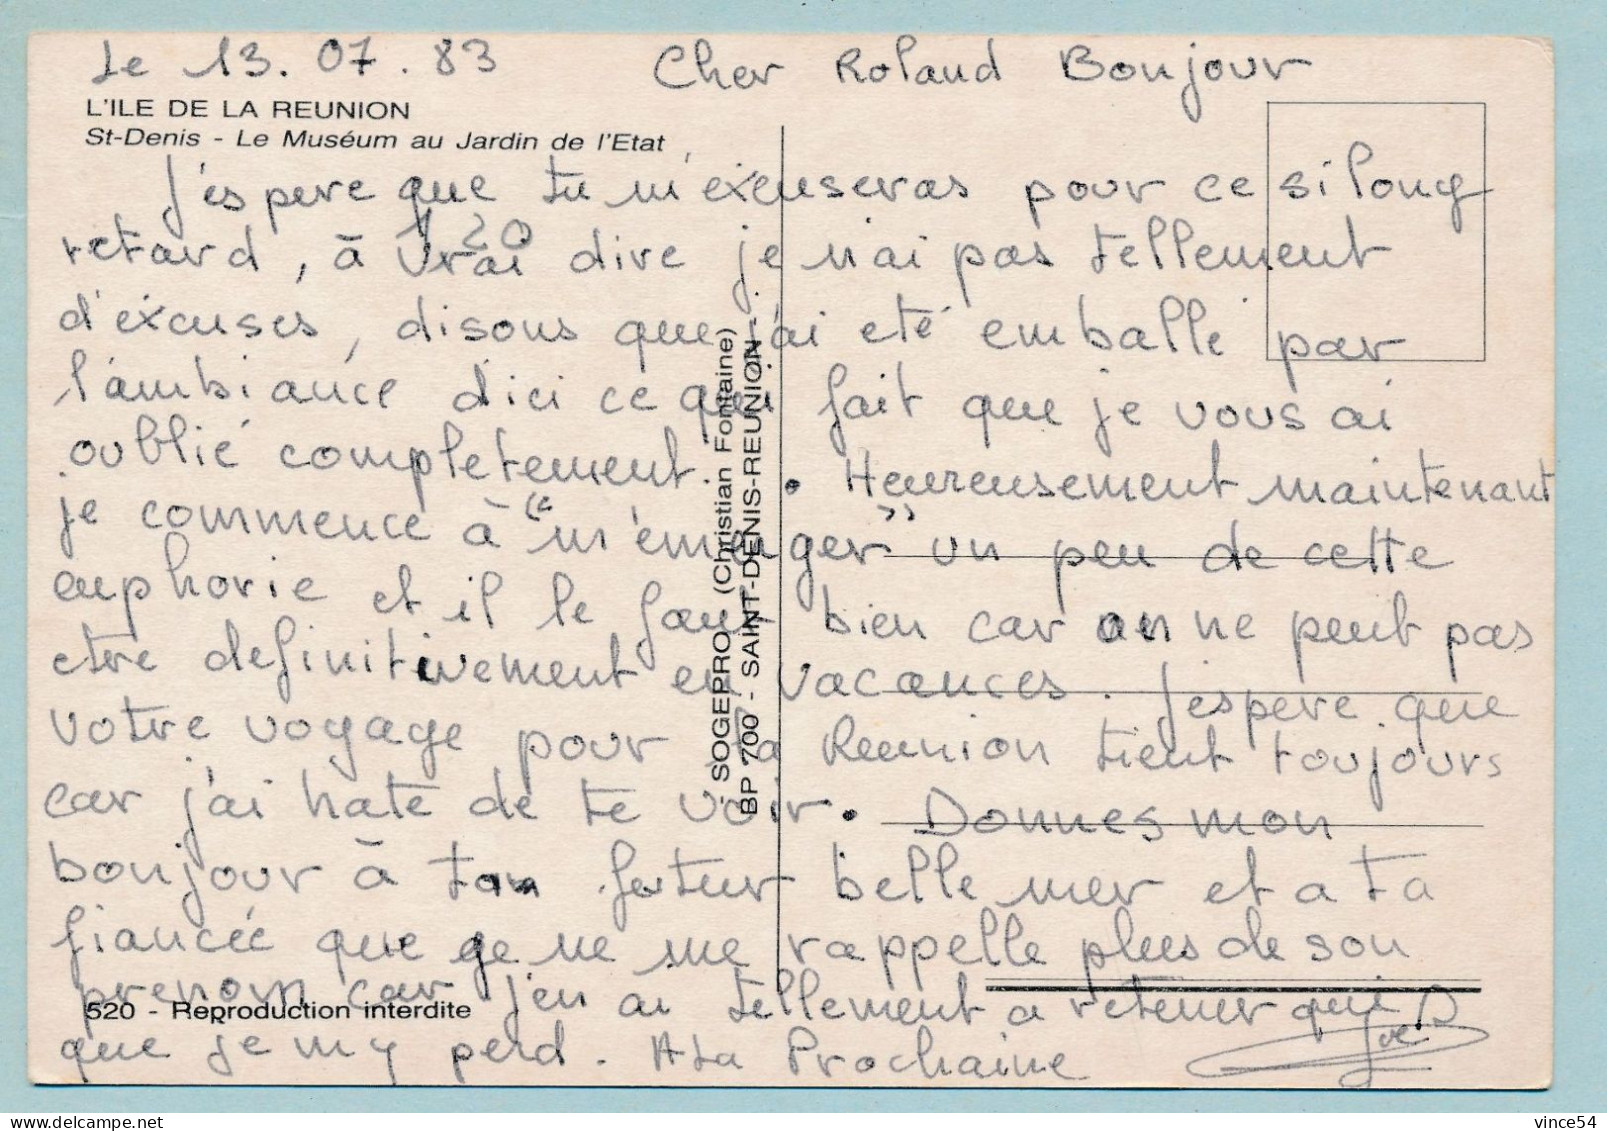 Le 13.07.83 Cher Roland Bonjour
L'ILE DE LA REUNION
St-Denis - Le Muséum au Jardin de l'Etat
J'espere que tu m'excuseras pour ce si long
1 20
retard, à vrai dire je n'ai pas tellement
d'excuses, disons que j'ai eté emballé par
l'ambiance d'ici ce qui fait que je vous ai
oublié completement. . Heureusement maintenant
je commence à "m'émerger" un peu de cette
euphorie et il le faut bien car on ne peut pas
etre definitivement en vacances. J'espere que
votre voyage pour la Reunion tient toujours
car j'ai hate de te voir. Donnes mon
bonjour à ton futur belle mer et a ta
fiancée que je ne me rappelle plus de son
prenom car j'en ai tellement a retenir qui
que je m'y perd. A La Prochaine
SOGEPRO (Christian Fontaine)
BP 700 - SAINT-DENIS-REUNION -
520 - Reproduction interdite
vince54